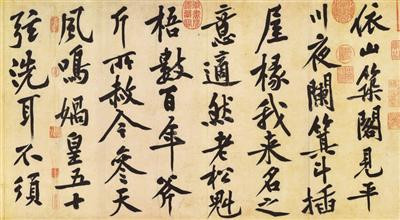 依山築閣見平
川夜闌箕斗插
屋椽我来名之
意適然老松魁
梧數百年斧
斤所赦今參天
風鳴媧皇五十
弦洗耳不須